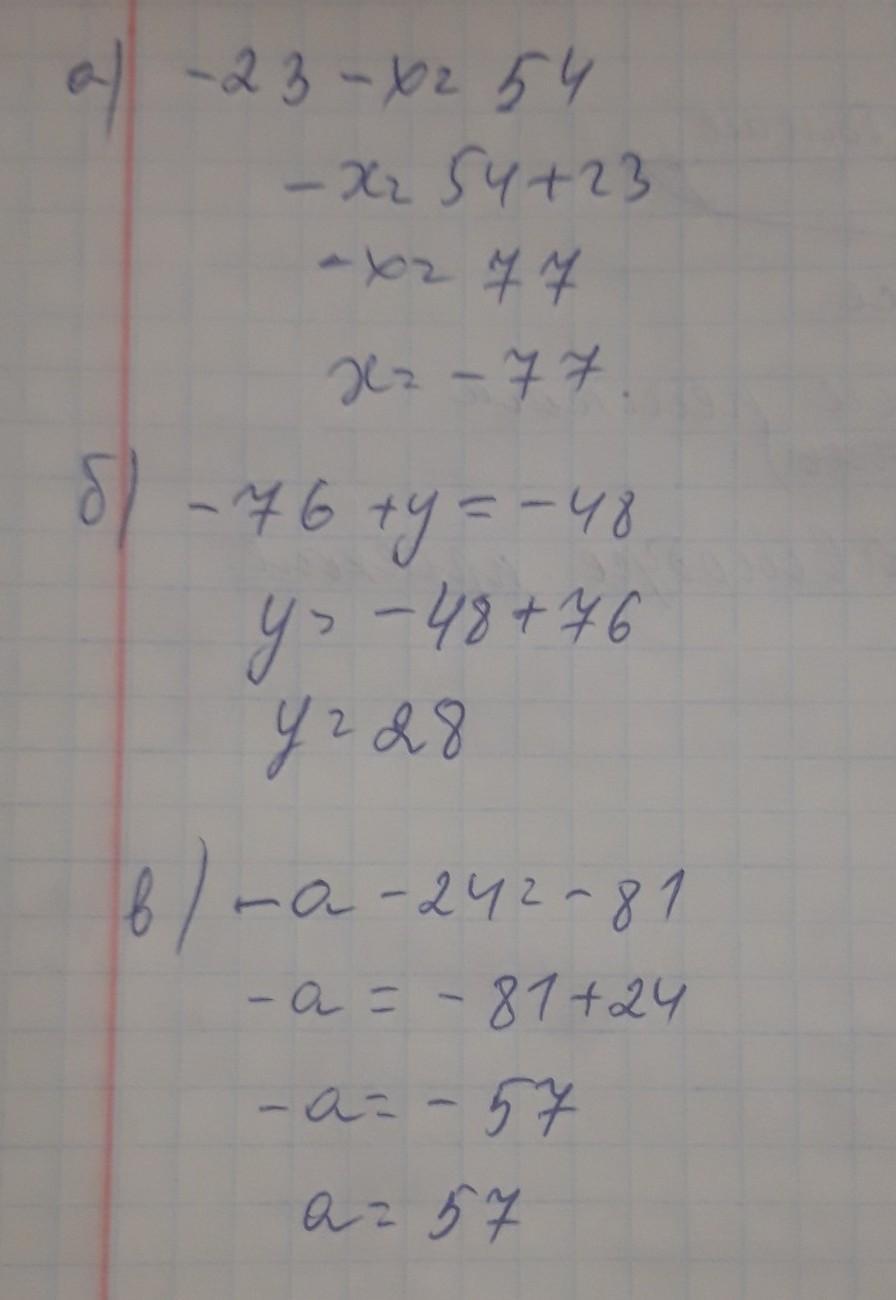 а) -23 - x = 54
-x = 54 + 23
-x = 77
x = -77.
б) -76 + y = -48
y = -48 + 76
y = 28
в) -a - 24 = -81
-a = -81 + 24
-a = -57
a = 57